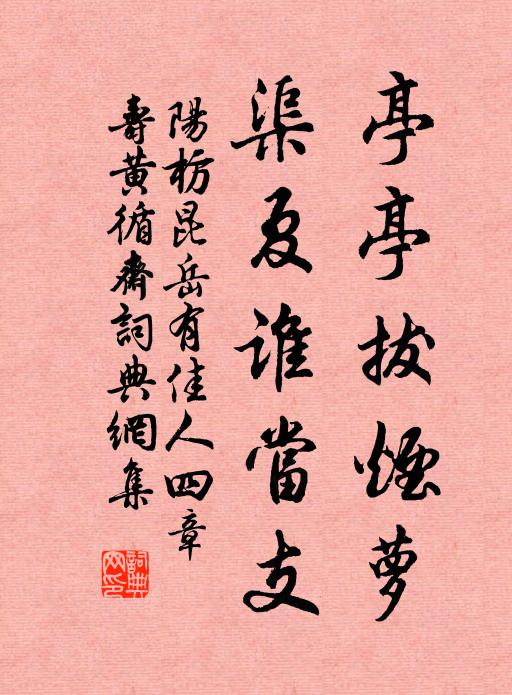 亭亭拔煙夢
渠夏誰當支
陽枋昆岳有佳人四章
壽黃循齋詞典網集
詞典網印